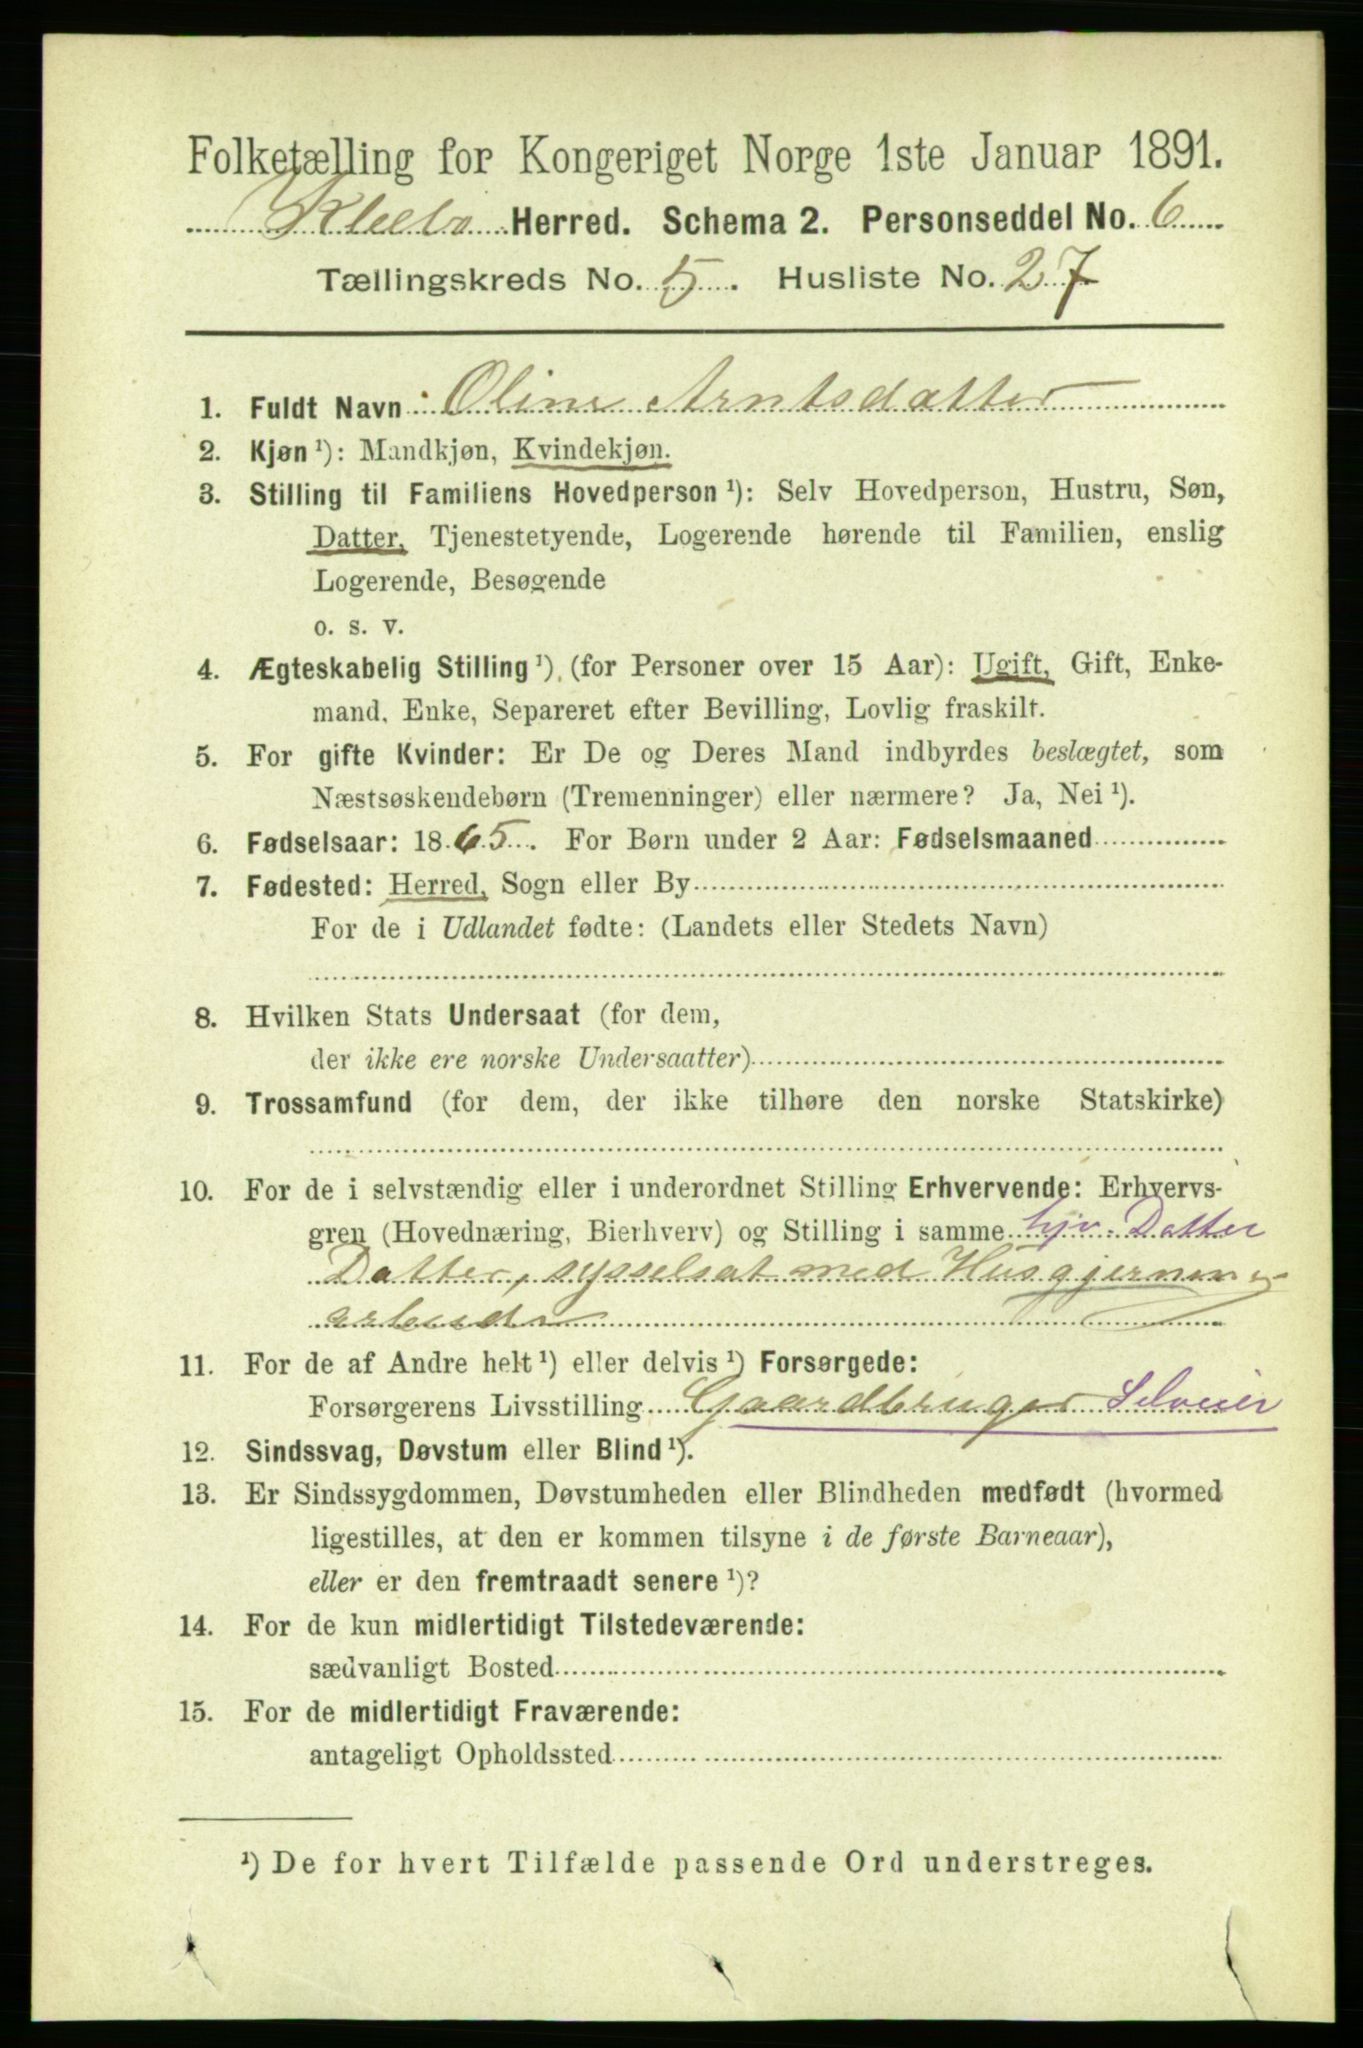 Folketælling for Kongeriget Norge 1ste Januar 1891.
Klæbo Herred. Schema 2. Personseddel No. 6
Tællingskreds No. 5. Husliste No. 27
1. Fuldt Navn: Oline Arntsdatter
2. Kjøn ¹): Mandkjøn, Kvindekjøn.
3. Stilling til Familiens Hovedperson ¹): Selv Hovedperson, Hustru, Søn,
Datter, Tjenestetyende, Logerende hørende til Familien, enslig
Logerende, Besøgende
o. s. v.
4. Ægteskabelig Stilling ¹) (for Personer over 15 Aar): Ugift, Gift, Enke-
mand, Enke, Separeret efter Bevilling, Lovlig fraskilt.
5. For gifte Kvinder: Er De og Deres Mand indbyrdes beslægtet, som
Næstsøskendebørn (Tremenninger) eller nærmere? Ja, Nei ¹).
6. Fødselsaar: 1865. For Børn under 2 Aar: Fødselsmaaned
7. Fødested: Herred, Sogn eller By
For de i Udlandet fødte: (Landets eller Stedets Navn)
8. Hvilken Stats Undersaat (for dem,
der ikke ere norske Undersaatter)
9. Trossamfund (for dem, der ikke tilhøre den norske Statskirke)
10. For de i selvstændig eller i underordnet Stilling Erhvervende: Erhvervs-
gren (Hovednæring, Bierhverv) og Stilling i samme hjv. Datter
Datter, sysselsat med Husgjerning
arbeide
11. For de af Andre helt ¹) eller delvis ¹) Forsørgede:
Forsørgerens Livsstilling Gaardbruger Selveier
12. Sindssvag, Døvstum eller Blind ¹).
13. Er Sindssygdommen, Døvstumheden eller Blindheden medfødt (hvormed
ligestilles, at den er kommen tilsyne i de første Barneaar),
eller er den fremtraadt senere ¹)?
14. For de kun midlertidigt Tilstedeværende:
sædvanligt Bosted
15. For de midlertidigt Fraværende:
antageligt Opholdssted
¹) De for hvert Tilfælde passende Ord understreges.